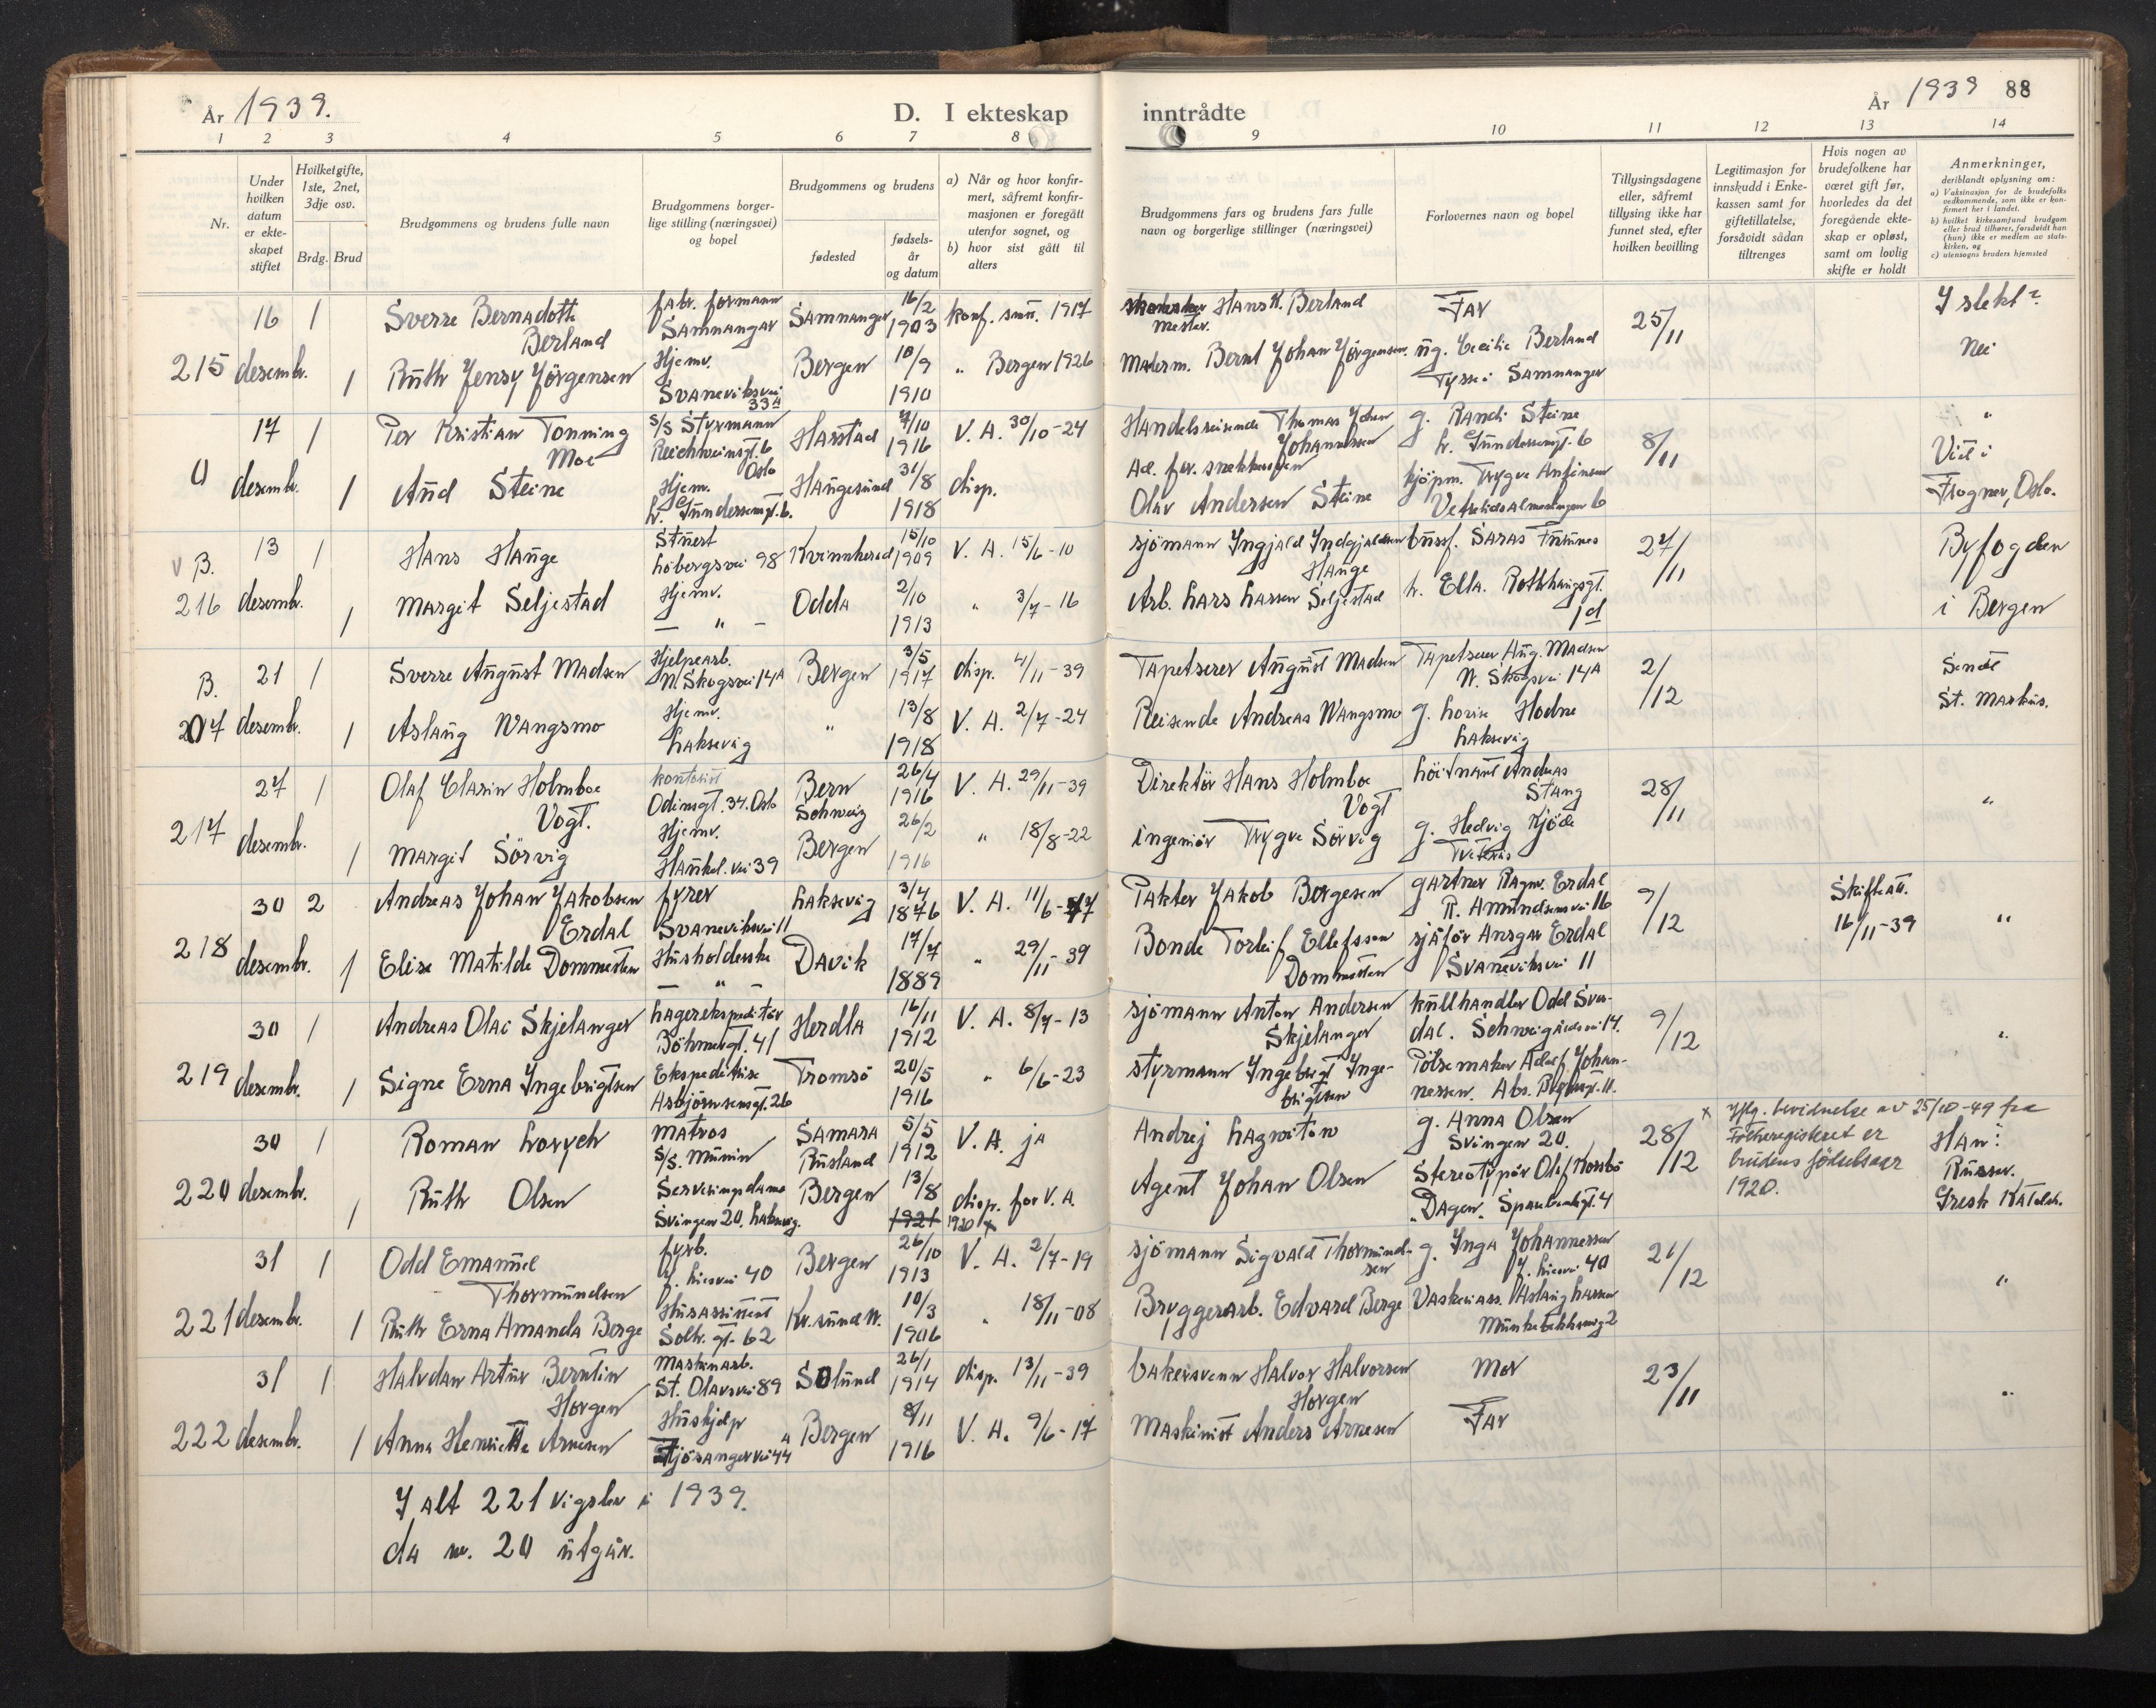 År 1939.
D. I ekteskap
inntrådte
År 1939 88
1 2 3 4 5 6 7 8 9 10 11 12 13 14
Nr.
Under hvilken datum er ekteskapet stiftet
Hvilket gifte, 1ste, 2net, 3dje osv.
Brdg. Brud
Brudgommens og brudens fulle navn
Brudgommens borgerlige stilling (næringsvei) og bopel
Brudgommens og brudens
fødested
fødselsår og datum
a) Når og hvor konfirmert, såfremt konfirmasjonen er foregått utenfor sognet, og
b) hvor sist gått til alters
Brudgommens fars og brudens fars fulle navn og borgerlige stillinger (næringsvei)
Forlovernes navn og bopel
Tillysingsdagene eller, såfremt tillysing ikke har funnet sted, efter hvilken bevilling
Legitimasjon for innskudd i Enkekassen samt for giftetillatelse, forsåvidt sådan tiltrenges
Hvis nogen av brudefolkene har været gift før, hvorledes da det foregående ekteskap er opløst, samt om lovlig skifte er holdt
Anmerkninger, deriblandt oplysning om:
a) Vaksinasjon for de brudefolks vedkommende, som ikke er konfirmert her i landet.
b) hvilket kirkesamfund brudgom eller brud tilhører, forsåvidt han (hun) ikke er medlem av statskirken, og
c) utensogns bruders hjemsted
215 16 desembr. 1 Sverre Bernadotte Berland fabr. formann Samnanger Samnanger 16/2 1903 konf. smn. 1917 Hans K. Berland Far 25/11 I slekt?
1 Ruth Jensy Jörgensen Hjemv. Svaneviksvei 33A Bergen 10/9 1910 " Bergen 1926 Malerm. Bernt Johan Jörgensen ug. Cecilie Berland Tysse i Samnanger Nei
0 17 desembr. 1 Per Kristian Tonning Moe S/S Styrmann Reichweinsgt. 6 Oslo Harstad 7/10 1916 V. A. 30/10-24 Handelsreisende Thomas Johan Johannessen g. Randi Steine L. Gundersensgt. 6 8/11 "
1 Aud Steine Hjem. L. Gundersensgt. 6. Haugesund 31/8 1918 disp. Olav Andersen Steine kjöpm. Trygve Anfinsen Vetrelidsalmeningen 6 Viet i Frogner, Oslo.
v B. 216 13 desembr. 1 Hans Hauge Stuert Löbergsvei 98 Kvinnherad 15/10 1909 V. A. 15/6-10 sjömann Ingjald Indgjaldsen Hauge 27/11 Byfogden
1 Margit Seljestad Hjemv. — " — Odda 2/10 1913 " 3/7-16 Arb. Lars Larsen Seljestad i Bergen
B. 207 21 desembr. 1 Sverre August Madsen Hjelpearb. N. Skogsvei 14A Bergen 3/5 1917 disp. 4/11-39 Tapetserer August Madsen Tapetserer Aug. Madsen N. Skogsvei 14A 2/12 Sendt
1 Aslaug Wangsmo Hjemv. Laksevåg " 13/8 1918 V. A. 2/7-24 Reisende Andreas Wangsmo g. Lovise Hodne Laksevåg St. Markus.
217 27 desembr. 1 Olaf Clasin Holmboe Vogt. kontorist Odinsgt. 34. Oslo Bern Schweiz 26/4 1916 V. A. 29/11-39 Direktör Hans Holmboe Vogt löitnant Andreas Stang 28/11 "
1 Margit Sörvig Hjemv. Haukel. vei 39 Bergen 26/2 1916 " 18/8-22 ingeniör Trygve Sörvig g. Hedvig Kjöde
218 30 desembr. 2 Andreas Johan Jakobsen Erdal fyrer Svaneviksvei 11 Laksevåg 3/4 1876 V. A. 11/6-37 Pakter Jakob Borgesen gartner Ragnv. Erdal R. Amundsensvei 116 9/12 Skifteatt. 16/11-39 "
1 Elise Matilde Dommersten Husholderske — " — Davik 17/7 1889 " 29/11-39 Bonde Torleif Ellefsson Dommersten sjåför Ansgar Erdal Svaneviksvei 11
219 30 desembr. 1 Andreas Olai Skjelanger Lagerekspeditör Böhmergt. 41 Herdla 16/11 1912 V. A. 8/7-13 sjömann Anton Andersen Skjelanger kullhandler Odd Sverdal. Schweigårdsvei 14. 9/12 "
1 Signe Erna Ingebrigtsen Ekspeditrise Asbjörnsensgt. 26 Tromsö 20/5 1916 " 6/6-23 styrmann Ingebrigt Ingebrigtsen Pölsemaker Adolf Johannessen
220 30 desembr. 1 Roman Lovych Matros S/S. Munin Samara Rusland 5/5 1912 V. A. ja Andrej Lagwiton g. Anna Olsen Svingen 20. 28/12 x Iflg. bevidnelse av 25/10-49 fra Folkeregisteret er brudens födselsaar 1920. Han: Russer. Gresk Katolsk.
1 Ruth Olsen Serveringsdame Svingen 20, Laksevåg. Bergen 13/8 1921 1920 x disp. for V. A. Agent Johan Olsen Stereotypör Olaf Korsbö "Dagen". Sparebanksgt. 4
221 31 desembr. 1 Odd Emanuel Thormundsen fyrb. J. Liesvei 40 Bergen 26/10 1913 V. A. 2/7-19 sjömann Sigvald Thormundsen g. Inga Johannessen J. Liesvei 40 21/12 "
1 Ruth Erna Amanda Berge Husassistent Solh. gt. 62 Kr.sund N. 10/3 1906 " 18/11-08 Bryggerarb. Edvard Berge Vaskeriass. Aslaug Larsen Munkebekkveg 2
222 31 desembr. 1 Halvdan Artur Berntin Horgen Maskinarb. St. Olavsvei 89 Solund 26/1 1914 disp. 13/11-39 bakersvenn Halvor Halvorsen Horgen Mor 23/11 "
1 Anna Henriette Arnesen Hushjelp Fjösangervei 44A Bergen 8/11 1916 V. A. 9/6-17 Maskinist Anders Arnesen Far
I alt 221 vigsler i 1939.
da nr. 20 utgår.